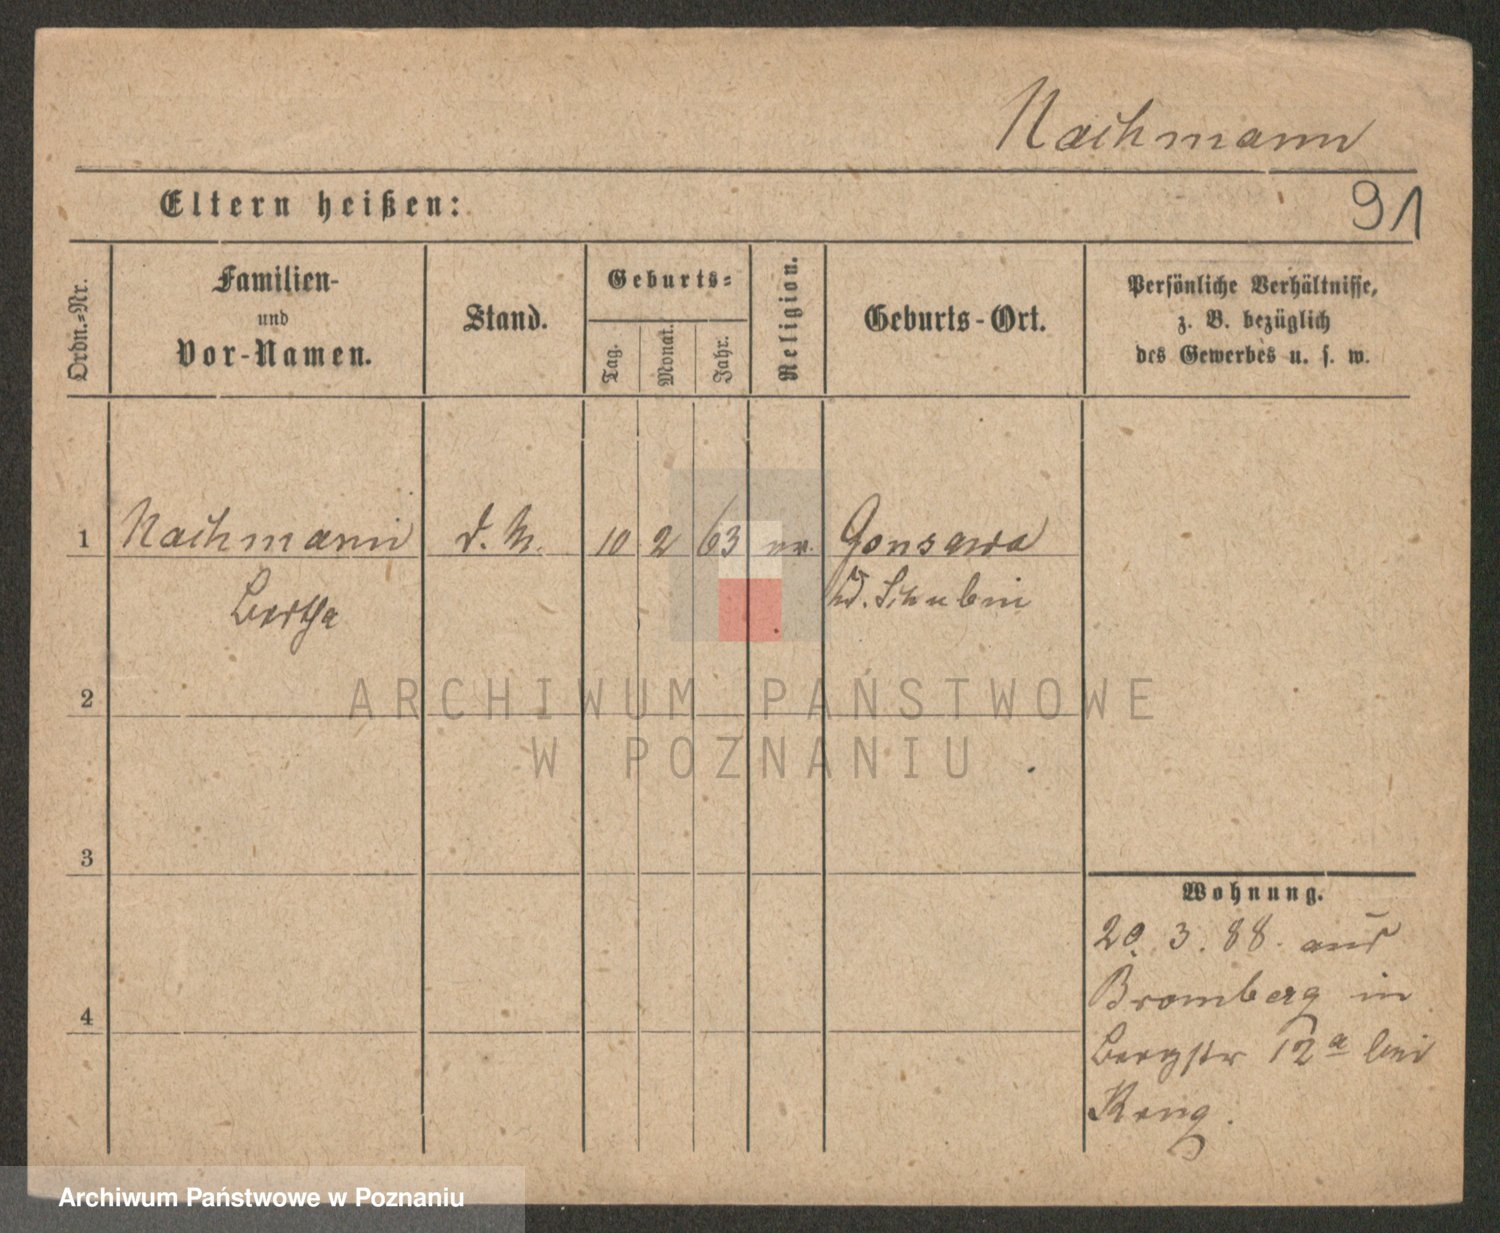 Nachmann
Eltern heißen:
91
Ordn.-Nr.
Familien-
und
Vor-Namen.
Stand.
Geburts-
Tag.
Monat.
Jahr.
Religion.
Geburts-Ort.
Persönliche Verhältnisse,
z. B. bezüglich
des Gewerbes u. s. w.
1 Nachmann d. M. 10 2 63 Gonsawa
Bertha Kr. Schubin
2
ARCHIWUM PAŃSTWOWE
W POZNANIU
3
Wohnung.
20. 3. 88. aus
Bromberg in
4
Bergstr 12a bei
Archiwum Państwowe w Poznaniu